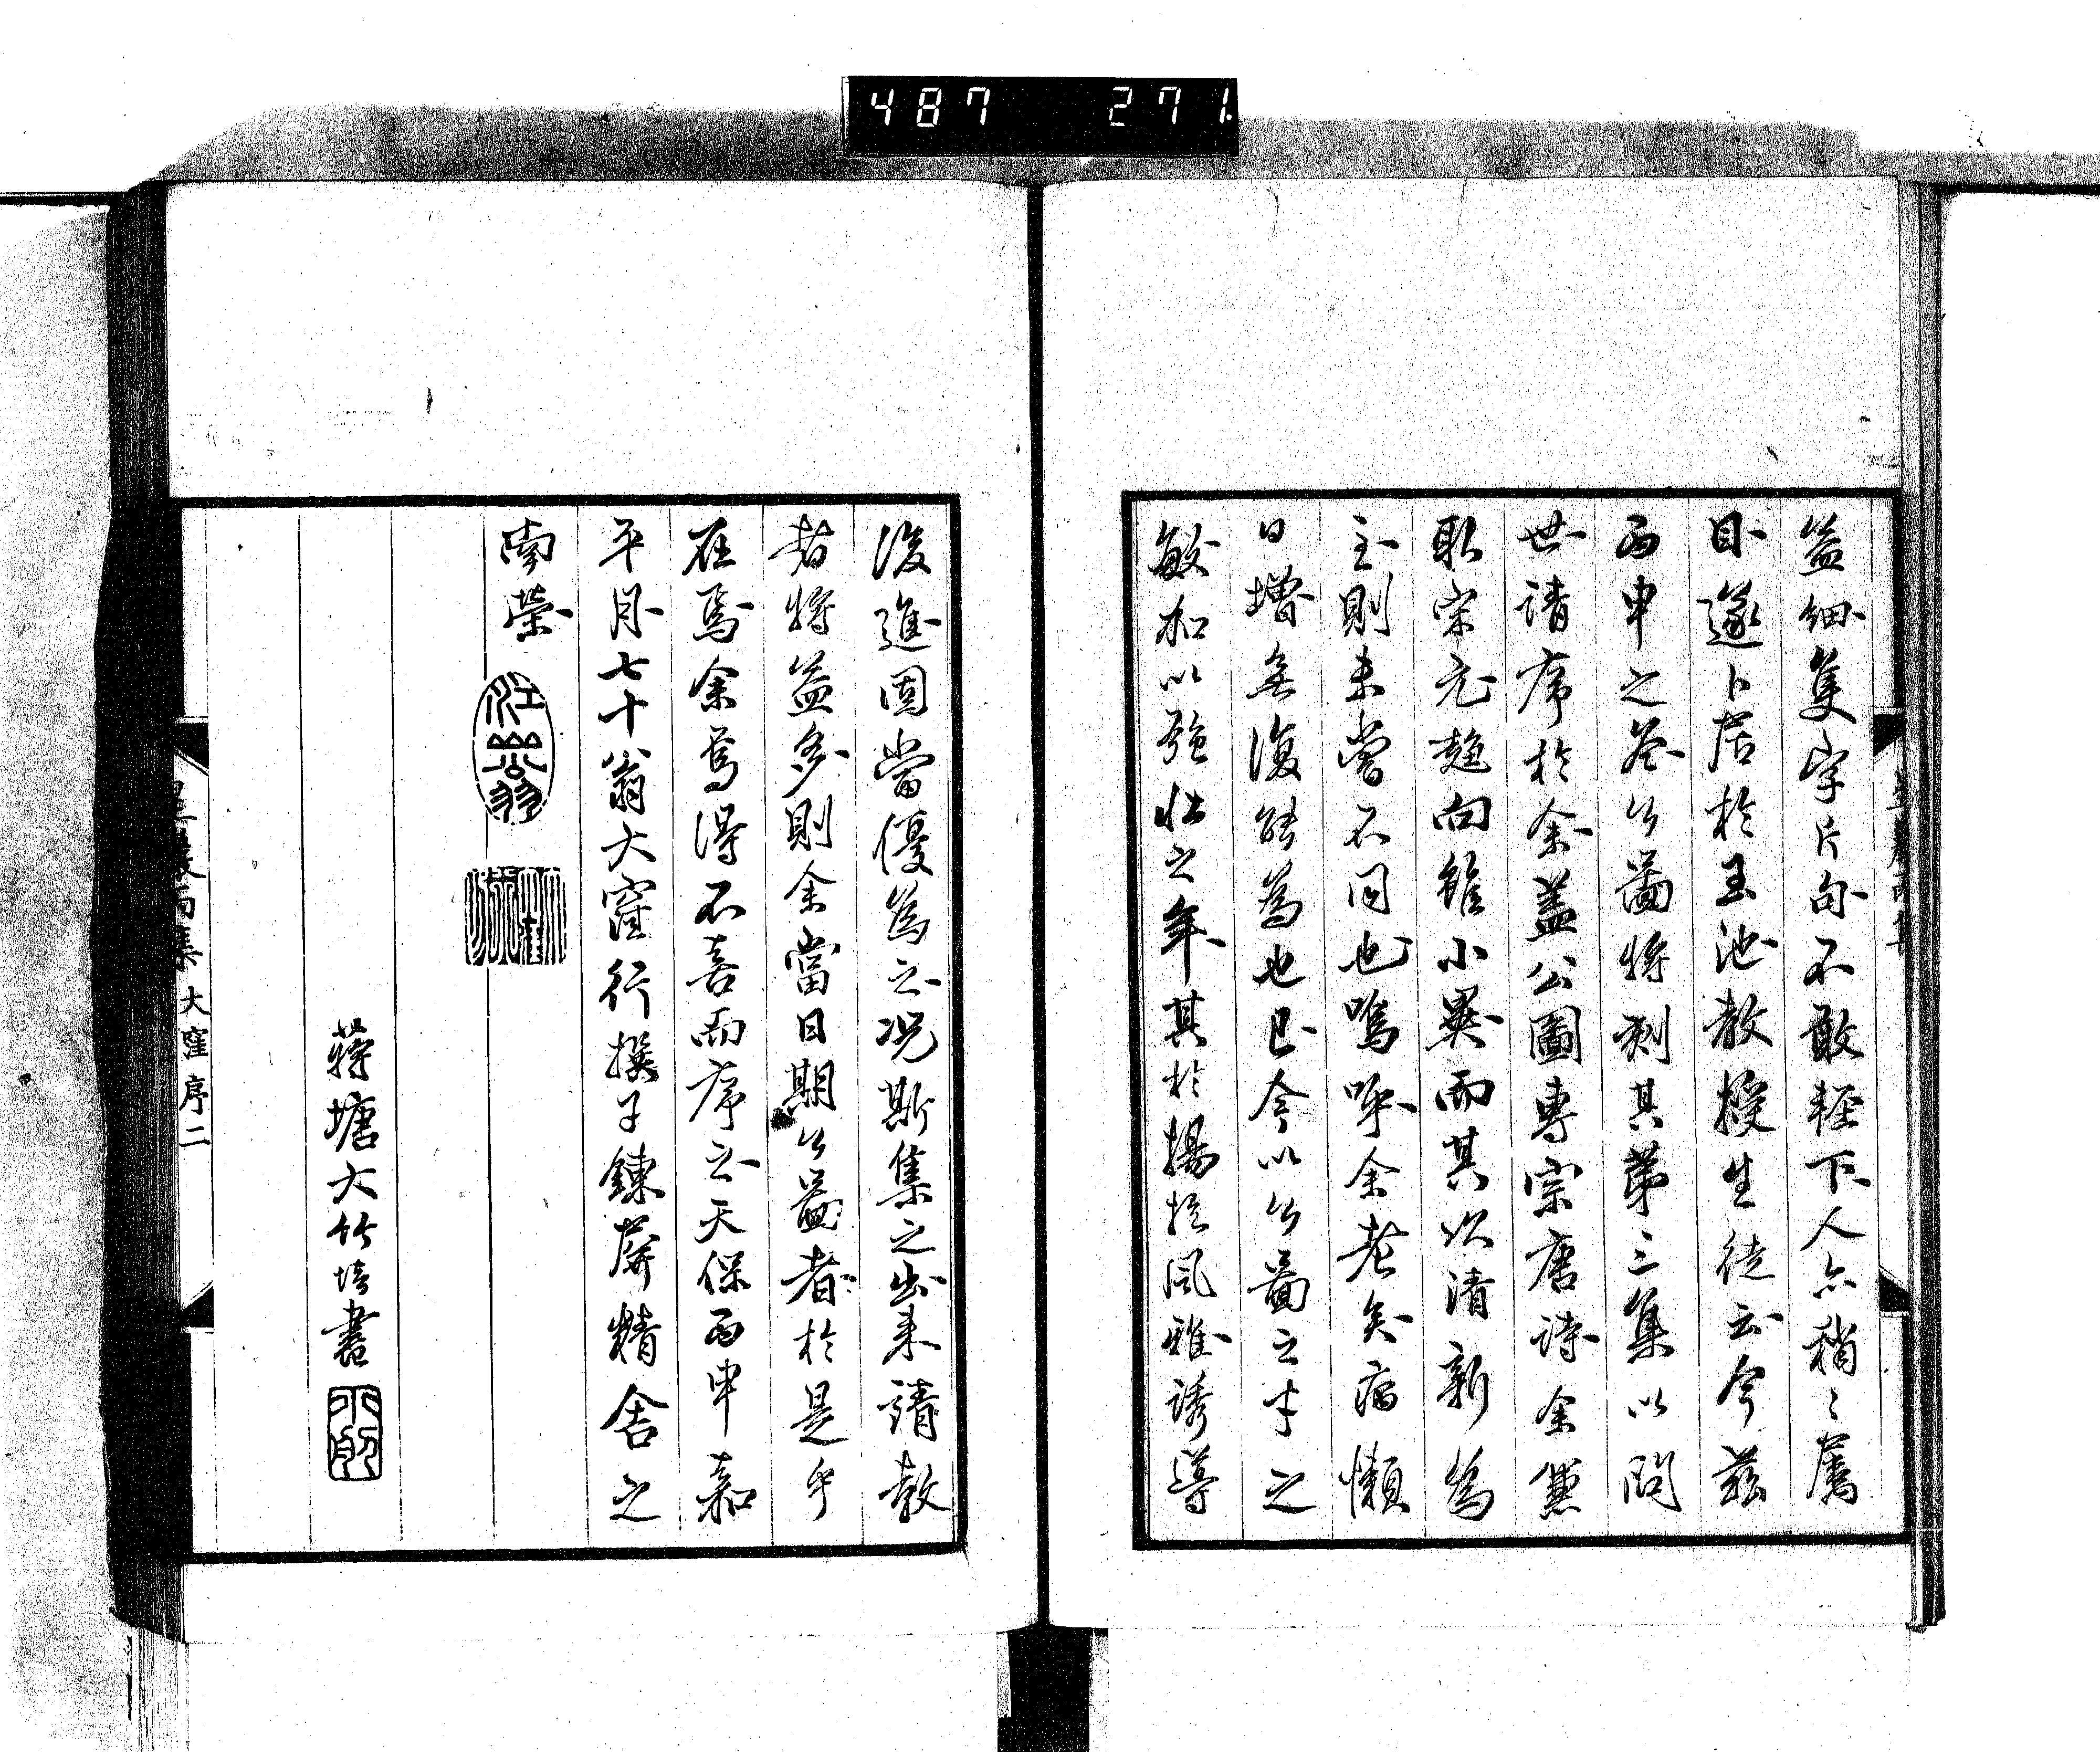 487 271
益細隻字片句不敢輕下人亦稍〻屬
目遂卜居於玉池教授生徒云今茲
丙申之冬公圖將刻其第三集以問
世請序於余蓋公圖專宗唐詩余兼
取宋元趣向雖小異而其以清新為
主則未嘗不同也嗚呼余老矣病懶
日增無復能為也已今以公圖之才之
敏加以強壯之年其於揚扢風雅誘導
後進固當優為之况斯集之出来請教
者將益多則余當日期公圖者於是乎
在焉余焉得不喜而序之天保丙申嘉
平月七十翁大窪行撰于鍊屏精舍之
南榮
江山翁
蔣塘大竹培書
大窪序二